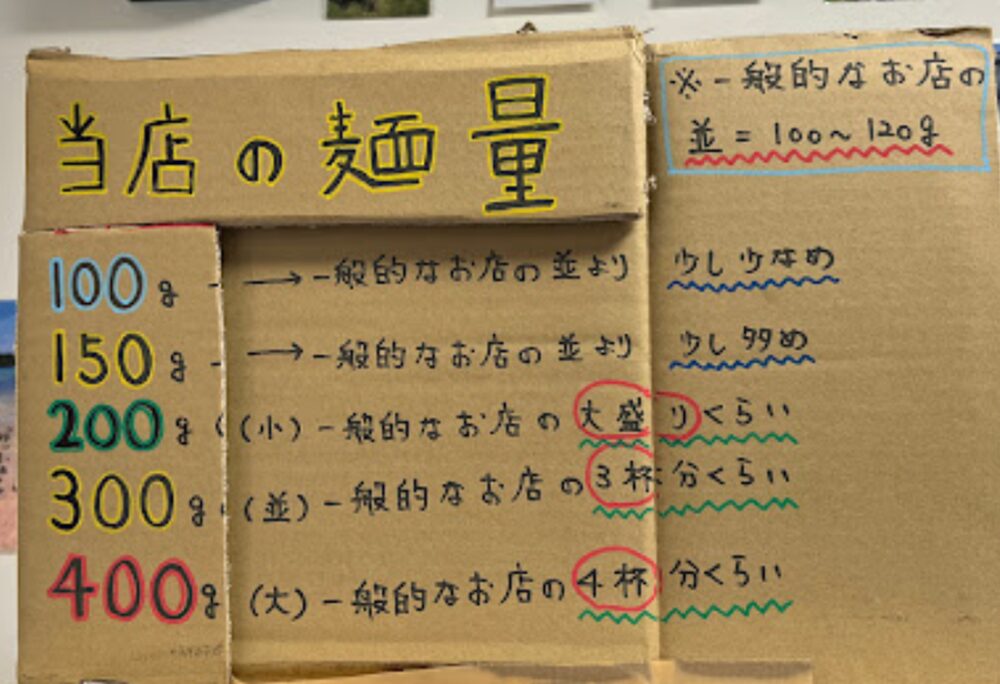 当店の麺量
※一般的なお店の
並=100〜120g
100g →一般的なお店の並より 少し少なめ
150g →一般的なお店の並より 少し多め
200g (小)一般的なお店の大盛りくらい
300g (並)一般的なお店の3杯分くらい
400g (大)一般的なお店の4杯分くらい